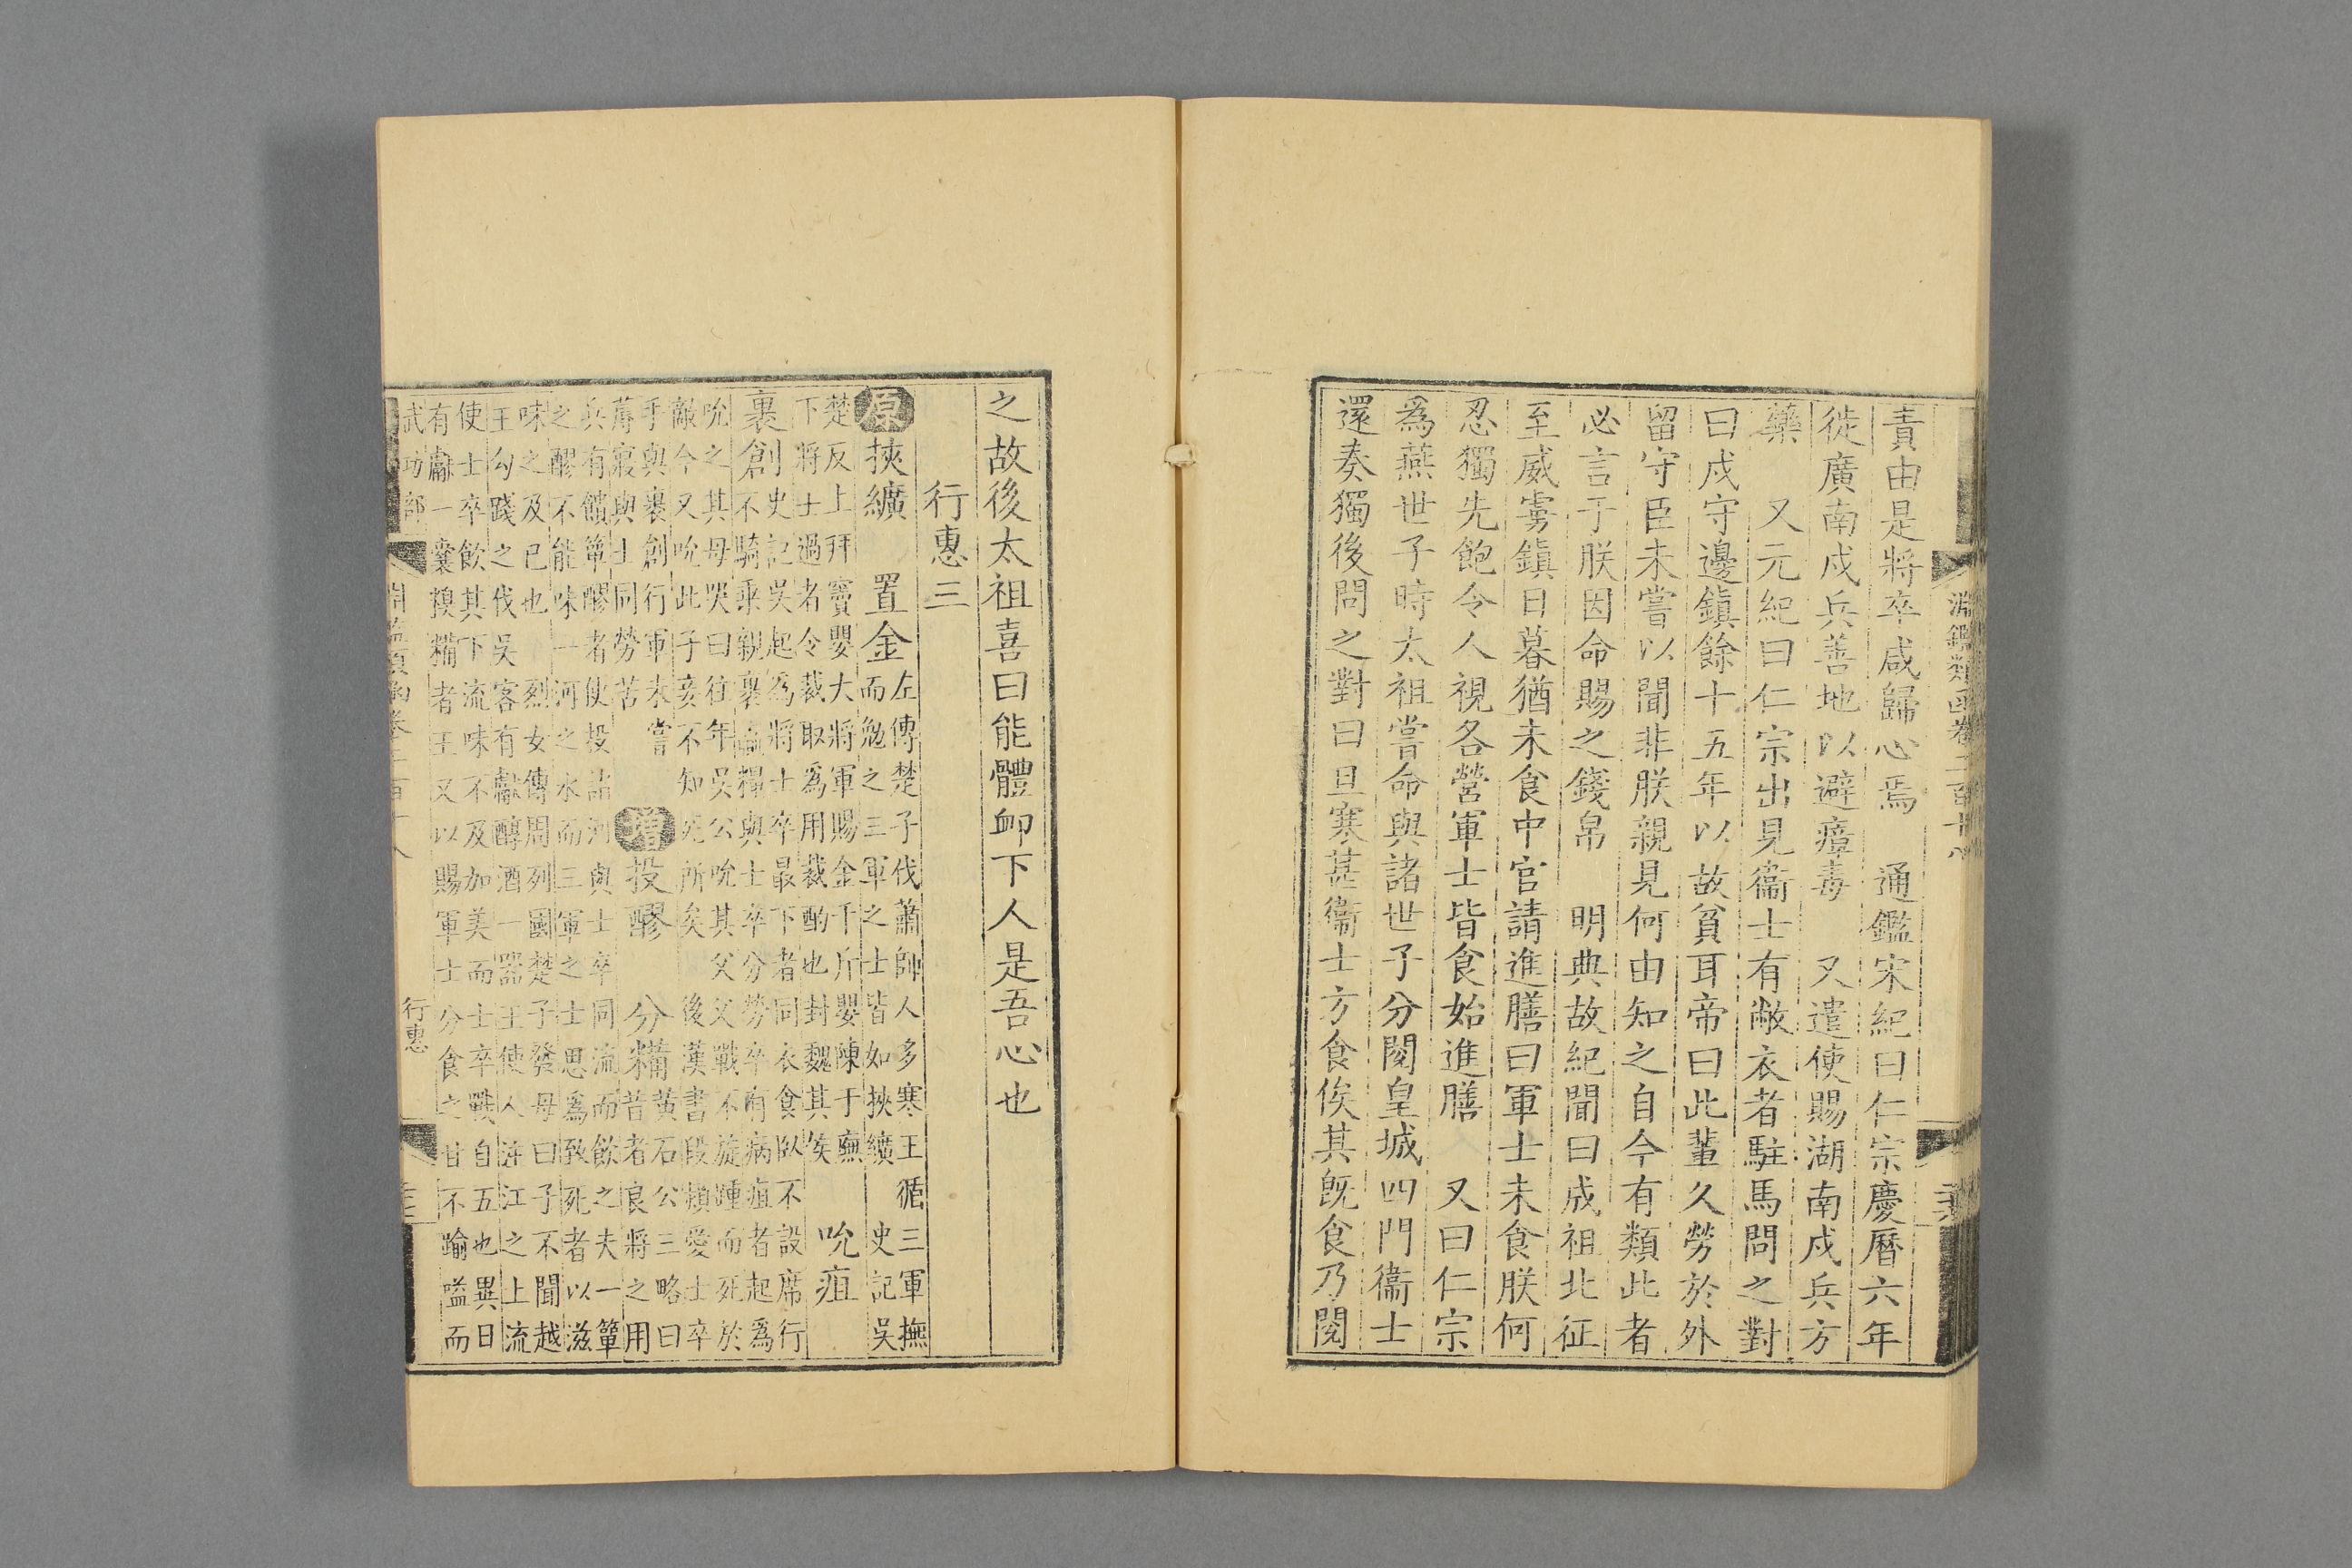 淵鑑類函卷二百十八
責由是將卒咸歸心焉　通鑑宋紀曰仁宗慶曆六年
徙廣南戍兵善地以避瘴毒　又遣使賜湖南戍兵方
藥　又元紀曰仁宗出見衞士有敝衣者駐馬問之對
曰戍守邊鎭餘十五年以故貧耳帝曰此輩久勞於外
留守臣未嘗以聞非朕親見何由知之自今有類此者
必言于朕因命賜之錢帛　明典故紀聞曰成祖北征
至威虜鎭日暮猶未食中官請進膳曰軍士未食朕何
忍獨先飽令人視各營軍士皆食始進膳　又曰仁宗
爲燕世子時太祖嘗命與諸世子分閱皇城四門衞士
還奏獨後問之對曰旦寒甚衞士方食俟其旣食乃閱
之故後太祖喜曰能體卹下人是吾心也
行惠三
原挾纊　置金左傳楚子伐蕭師人多寒王循三軍撫
而勉之三軍之士皆如挾纊　史記吳
楚反上拜竇嬰大將軍賜金千斤嬰陳于廡
下將士過者令裁取爲用裁酌也封魏其侯　吮疽
裹創史記吳起爲將士卒最下者同衣食臥不設席行
不騎乘親裹贏糧與士卒分勞卒有病疽者起爲
吮之其母哭曰往年吳公吮其父父戰不旋踵而死於
敵今又吮此子妾不知死所矣　後漢書段熲愛士卒
手與裹創行軍未嘗
蓐寢與士同勞苦　增投醪　分糒黃石公三略曰
昔者良將之用
兵有饋簞醪者使投諸河與士卒同流而飲之夫一簞
之醪不能味一河之水而三軍之士思爲致死者以滋
味之及已也　烈女傳周列國楚子發母曰子不聞越
王勾踐之伐吳客有獻醇酒一器王使人注江之上流
使士卒飲其下流味不及加美而士卒戰自五也異日
有獻一囊糗糒者王又以賜軍士分食之甘不踰嗌而
武功部
淵鑑類函卷二百十八
行惠